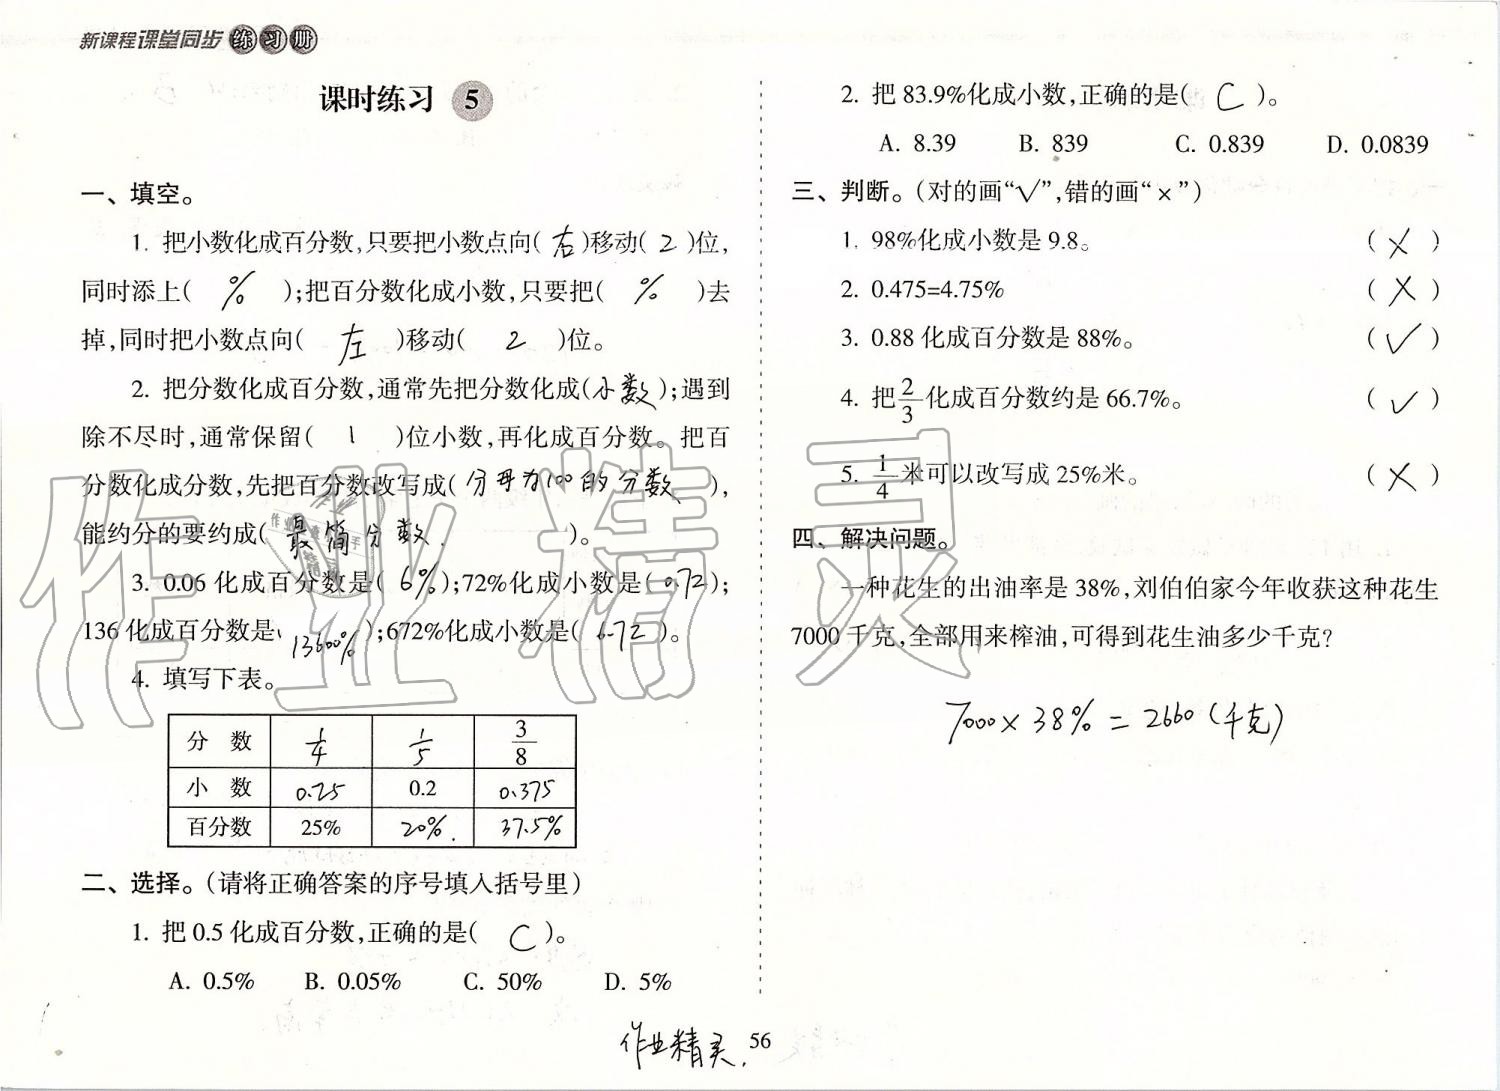 新课程课堂同步练习册
课时练习 5
一、填空。
1. 把小数化成百分数,只要把小数点向( 右 )移动( 2 )位,
同时添上( % );把百分数化成小数,只要把( % )去
掉,同时把小数点向( 左 )移动( 2 )位。
2. 把分数化成百分数,通常先把分数化成(小数);遇到
除不尽时,通常保留( 1 )位小数,再化成百分数。把百
分数化成分数,先把百分数改写成( 分母为100的分数 ),
能约分的要约成( 最简分数. )。
3. 0.06 化成百分数是( 6% );72%化成小数是( 0.72 );
136 化成百分数是( 13600% );672%化成小数是( 6.72 )。
4. 填写下表。
分 数 1/4 1/5 3/8
小 数 0.25 0.2 0.375
百分数 25% 20%. 37.5%
二、选择。(请将正确答案的序号填入括号里)
1. 把 0.5 化成百分数,正确的是( C )。
A. 0.5% B. 0.05% C. 50% D. 5%
2. 把 83.9%化成小数,正确的是( C )。
A. 8.39 B. 839 C. 0.839 D. 0.0839
三、判断。(对的画“√”,错的画“×”)
1. 98%化成小数是 9.8。 ( × )
2. 0.475=4.75% ( × )
3. 0.88 化成百分数是 88%。 ( √ )
4. 把 2/3 化成百分数约是 66.7%。 ( √ )
5. 1/4 米可以改写成 25%米。 ( × )
四、解决问题。
一种花生的出油率是 38%,刘伯伯家今年收获这种花生
7000 千克,全部用来榨油,可得到花生油多少千克?
7000×38%=2660(千克)
作业精灵
作业精灵.
56